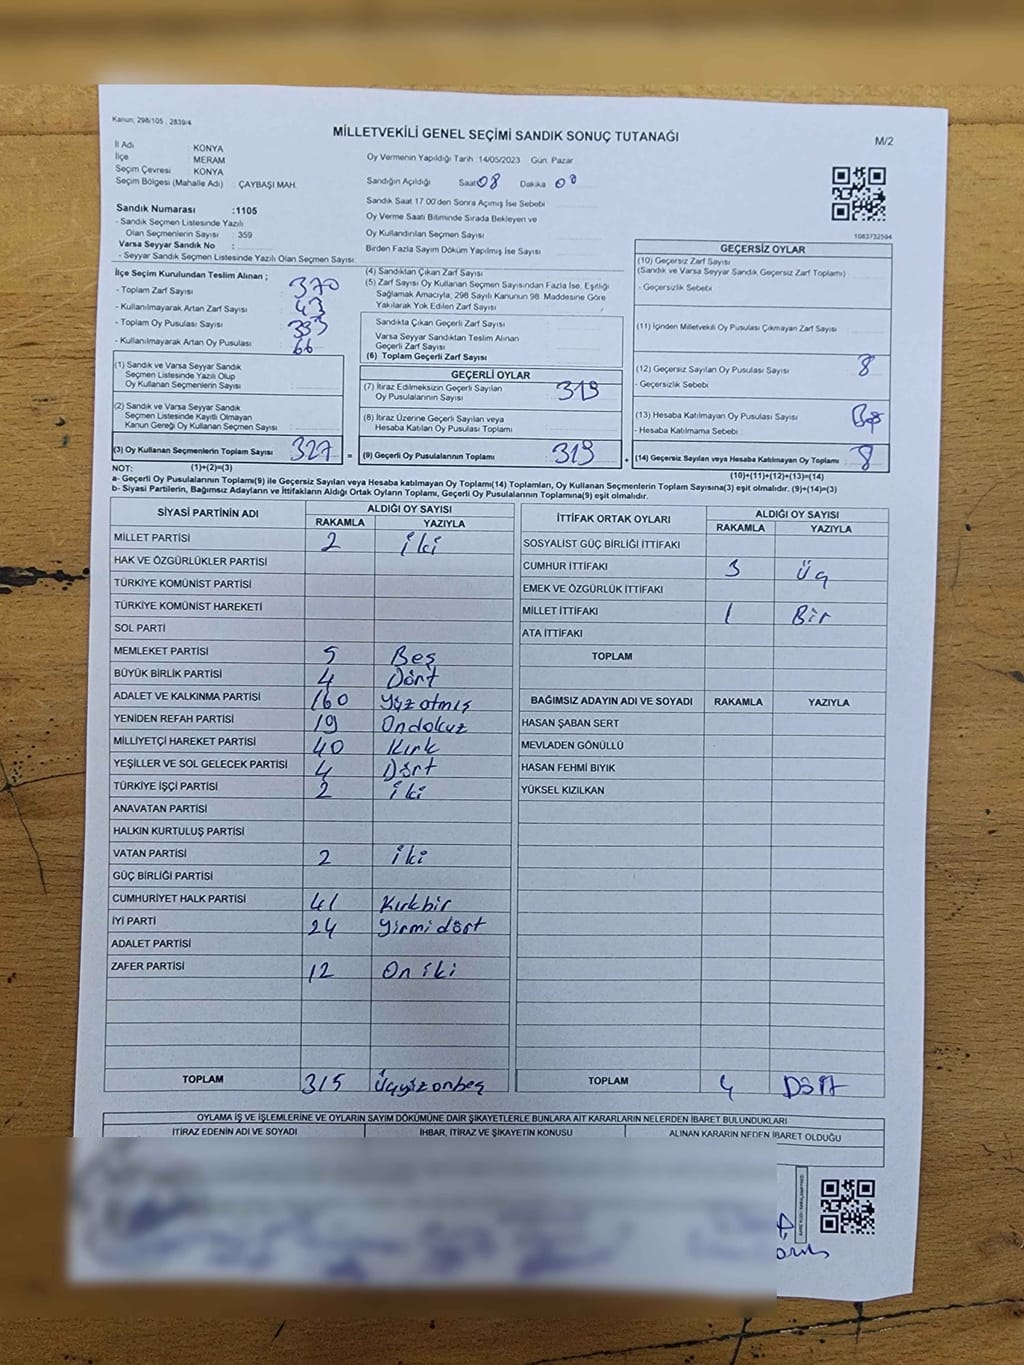 Kanun; 298/105 , 2839/4
MİLLETVEKİLİ GENEL SEÇİMİ SANDIK SONUÇ TUTANAĞI
M/2
İl Adı : KONYA
İlçe : MERAM
Seçim Çevresi : KONYA
Seçim Bölgesi (Mahalle Adı) : ÇAYBAŞI MAH.
Oy Vermenin Yapıldığı Tarih 14/05/2023 Gün: Pazar
Sandığın Açıldığı Saat 08 Dakika 00
Sandık Saat 17:00'den Sonra Açımış İse Sebebi
Oy Verme Saati Bitiminde Sırada Bekleyen ve
Oy Kullandırılan Seçmen Sayısı
Birden Fazla Sayım Döküm Yapılmış İse Sayısı
Sandık Numarası :1105
- Sandık Seçmen Listesinde Yazılı
Olan Seçmenlerin Sayısı : 359
Varsa Seyyar Sandık No :
- Seyyar Sandık Seçmen Listesinde Yazılı Olan Seçmen Sayısı:
1083732594
İlçe Seçim Kurulundan Teslim Alınan ;
- Toplam Zarf Sayısı : 370
- Kullanılmayarak Artan Zarf Sayısı : 43
- Toplam Oy Pusulası Sayısı : 393
- Kullanılmayarak Artan Oy Pusulası : 66
(1) Sandık ve Varsa Seyyar Sandık
Seçmen Listesinde Yazılı Olup
Oy Kullanan Seçmenlerin Sayısı :
(2) Sandık ve Varsa Seyyar Sandık
Seçmen Listesinde Kayıtlı Olmayan
Kanun Gereği Oy Kullanan Seçmen Sayısı :
(3) Oy Kullanan Seçmenlerin Toplam Sayısı : 327
(4) Sandıktan Çıkan Zarf Sayısı :
(5) Zarf Sayısı Oy Kullanan Seçmen Sayısından Fazla İse, Eşitliği
Sağlamak Amacıyla, 298 Sayılı Kanunun 98. Maddesine Göre
Yakılarak Yok Edilen Zarf Sayısı :
Sandıkta Çıkan Geçerli Zarf Sayısı :
Varsa Seyyar Sandıktan Teslim Alınan
Geçerli Zarf Sayısı :
(6) Toplam Geçerli Zarf Sayısı :
GEÇERLİ OYLAR
(7) İtiraz Edilmeksizin Geçerli Sayılan
Oy Pusulalarının Sayısı : 319
(8) İtiraz Üzerine Geçerli Sayılan veya
Hesaba Katılan Oy Pusulası Toplamı :
= (9) Geçerli Oy Pusulalarının Toplamı : 319
GEÇERSİZ OYLAR
(10) Geçersiz Zarf Sayısı
(Sandık ve Varsa Seyyar Sandık Geçersiz Zarf Toplamı) :
- Geçersizlik Sebebi :
(11) İçinden Milletvekili Oy Pusulası Çıkmayan Zarf Sayısı :
(12) Geçersiz Sayılan Oy Pusulası Sayısı : 8
- Geçersizlik Sebebi :
(13) Hesaba Katılmayan Oy Pusulası Sayısı : Boş
- Hesaba Katılmama Sebebi :
+ (14) Geçersiz Sayılan veya Hesaba Katılmayan Oy Toplamı : 8
NOT: (1)+(2)=(3)
(10)+(11)+(12)+(13)=(14)
a- Geçerli Oy Pusulalarının Toplamı(9) ile Geçersiz Sayılan veya Hesaba katılmayan Oy Toplamı(14) Toplamları, Oy Kullanan Seçmenlerin Toplam Sayısına(3) eşit olmalıdır. (9)+(14)=(3)
b- Siyasi Partilerin, Bağımsız Adayların ve İttifakların Aldığı Ortak Oyların Toplamı, Geçerli Oy Pusulalarının Toplamına(9) eşit olmalıdır.
SİYASİ PARTİNİN ADI ALDIĞI OY SAYISI
RAKAMLA YAZIYLA
MİLLET PARTİSİ 2 iki
HAK VE ÖZGÜRLÜKLER PARTİSİ
TÜRKİYE KOMÜNİST PARTİSİ
TÜRKİYE KOMÜNİST HAREKETİ
SOL PARTİ
MEMLEKET PARTİSİ 5 Beş
BÜYÜK BİRLİK PARTİSİ 4 Dört
ADALET VE KALKINMA PARTİSİ 160 Yüzotmış
YENİDEN REFAH PARTİSİ 19 Ondokuz
MİLLİYETÇİ HAREKET PARTİSİ 40 Kırk
YEŞİLLER VE SOL GELECEK PARTİSİ 4 Dört
TÜRKİYE İŞÇİ PARTİSİ 2 iki
ANAVATAN PARTİSİ
HALKIN KURTULUŞ PARTİSİ
VATAN PARTİSİ 2 iki
GÜÇ BİRLİĞİ PARTİSİ
CUMHURİYET HALK PARTİSİ 41 Kırkbir
İYİ PARTİ 24 Yirmidört
ADALET PARTİSİ
ZAFER PARTİSİ 12 On iki
TOPLAM 315 Üçyüzonbeş
İTTİFAK ORTAK OYLARI ALDIĞI OY SAYISI
RAKAMLA YAZIYLA
SOSYALİST GÜÇ BİRLİĞİ İTTİFAKI
CUMHUR İTTİFAKI 3 Üç
EMEK VE ÖZGÜRLÜK İTTİFAKI
MİLLET İTTİFAKI 1 Bir
ATA İTTİFAKI
TOPLAM
BAĞIMSIZ ADAYIN ADI VE SOYADI RAKAMLA YAZIYLA
HASAN ŞABAN SERT
MEVLADEN GÖNÜLLÜ
HASAN FEHMİ BIYIK
YÜKSEL KIZILKAN
TOPLAM 4 Dört
OYLAMA İŞ VE İŞLEMLERİNE VE OYLARIN SAYIM DÖKÜMÜNE DAİR ŞİKAYETLERLE BUNLARA AİT KARARLARIN NELERDEN İBARET BULUNDUKLARI
İTİRAZ EDENİN ADI VE SOYADI İHBAR, İTİRAZ VE ŞİKAYETİN KONUSU ALINAN KARARIN NEDEN İBARET OLDUĞU